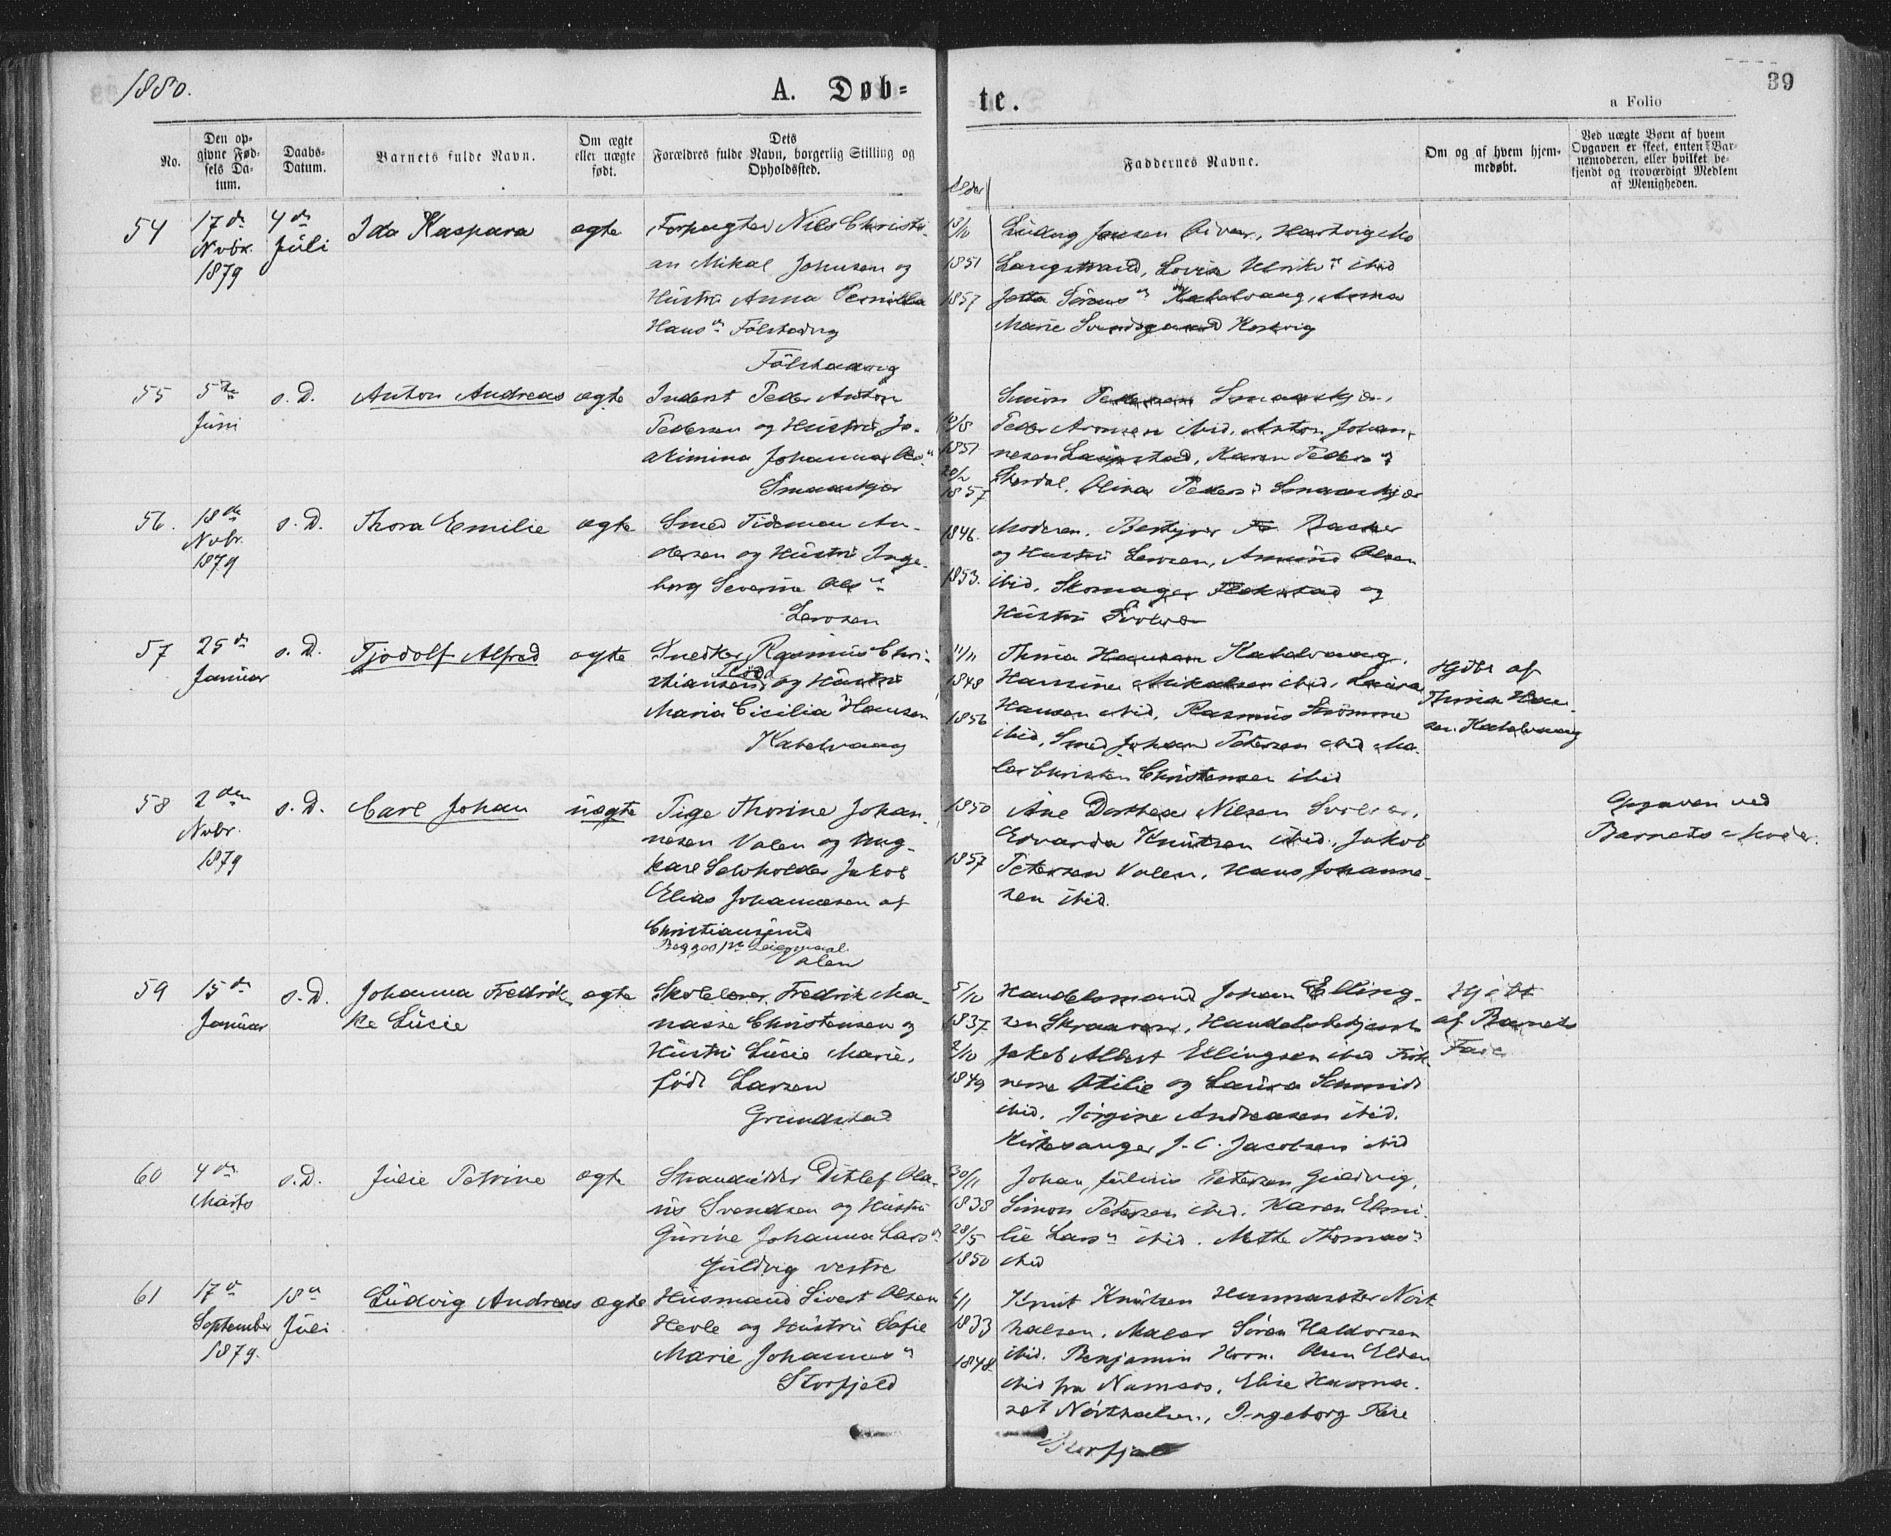 1880.
A. Døb-
te.
39
a Folio
No.
Den op-
givne Fød-
sels Da-
tum.
Daabs-
Datum.
Barnets fulde Navn.
Om ægte
eller uægte
født.
Dets
Forældres fulde Navn, borgerlig Stilling og
Opholdssted.
Alder
Faddernes Navne.
Om og af hvem hjem-
medøbt.
Ved uægte Børn af hvem
Opgaven er skeet, enten Bar-
nemoderen, eller hvilket be-
kjendt og troværdigt Medlem
af Menigheden.
54
17de
Novbr.
1879
4de
Juli
Ida Kaspara
ægte
Forpagter Nils Christi-
an Mikal Johnsen og
Hustru Anna Pernilla
Hansd
1851
1857
Ludvig Jensen
Langstrand, Lovise Ulrik ibid
Kabelvaag, Anna
Marie
55
5te
Juni
s. D.
Anton Andreas
ægte
Inderst Peder Anton
Pedersen og Hustru Jo-
akimina Johanna
Smaaskjær
1851
1857
Simon Pedersen Smaaskjær,
Peder Aronsen ibid, Anton Johan-
nesen Laupstad, Karen Peders
Olina Peders Smaaskjær
56.
18de
Novbr.
1879
s. D.
Thora Emilie
ægte
Smed Tideman An-
dersen og Hustru Inge-
borg Severine Ols
1846.
1853.
Moderen, Bestyrer
og Hustru Amund Olsen
ibid, Skomager og
Hustru Svolvær
57
25de
Januar
s. D.
Tjodolf Alfred
ægte
Snedker Rasmus Chri-
stiansen og Hustru
Maria Cicilia Hansen
Kabelvaag
11/11
1848
1856
Thina Hansen Kabelvaag,
Hansine Mikalsen ibid, Laura
Hansen ibid, Rasmus Strömme
ibid, Smed Johan Petersen ibid Ma-
ler Christen Christensen ibid
Hjdbt af
Thina Han-
sen Kabelvaag
58
2den
Nvbr.
1879
s. D.
Carl Johan
uægte
Pige Thorine Johan-
nesen Valen og Ung-
karl Selvholder Jakob
Elias Johannesen af
Christiansund
Begges 1ste Leiermaal.
Valen
1850
1857
Ane Dorthea Nilsen Svolvær,
Edvarda Knutsen ibid, Jakob
Petersen Valen, Hans Johanne-
sen ibid.
Opgaven ved
Barnets Moder.
59
15de
Januar
s. D.
Johanna Fredrik-
ke Lucie
ægte
Skolelærer Fredrik Ma-
nasse Christensen og
Hustru Lucie Marie,
født Larsen
Grundstad
5/10
1837
2/10
1849
Handelsmand Johan Elling-
sen Skraaven, Handelsbetjent
Jakob Albert Ellingsen ibid Frök-
nerne Otilie og Laura Schmidt
ibid. Jörgine Andreasen ibid.
Kirkesanger J. C. Jacobsen ibid
Hjdbt
af Barnets
Fader
60
4de
Marts
s. D.
Julie Petrine
ægte
Strandsidder Ditlef Ola-
us Svendsen og Hustru
Gurine Johanna Larsd
Guldvig vestre
30/11
1838
28/5
1850
Johan Julius Petersen Guldvig,
Simon Petersen ibid. Karen Emi-
lie Larsd ibid. Mette Thomasd
ibid
61
17de
September
1879.
18de
Juli
Ludvig Andreas
ægte
Husmand Sivert Olsen
Hevle og Hustru Sofie
Marie Johannes
Storfjeld
1833
1848
Knut Knutsen
Maler Sören Haldorsen
ibid. Benjamin
ibid fra Namsos, Elise
Ingeborg
Storfjeld